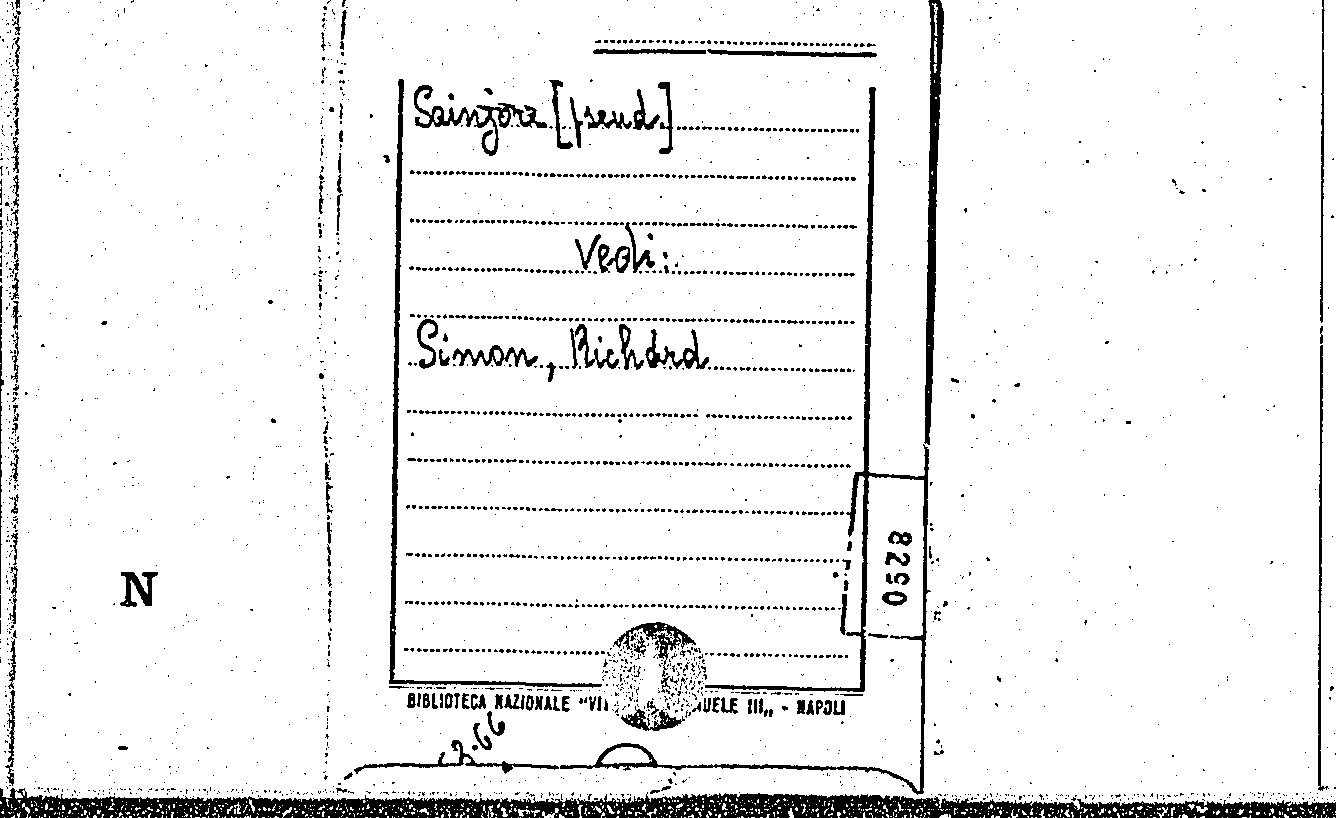 Sainjore [pseud.]
Vedi:
Simon, Richard
8290
N
BIBLIOTECA NAZIONALE "VI UELE III„ - NAPOLI